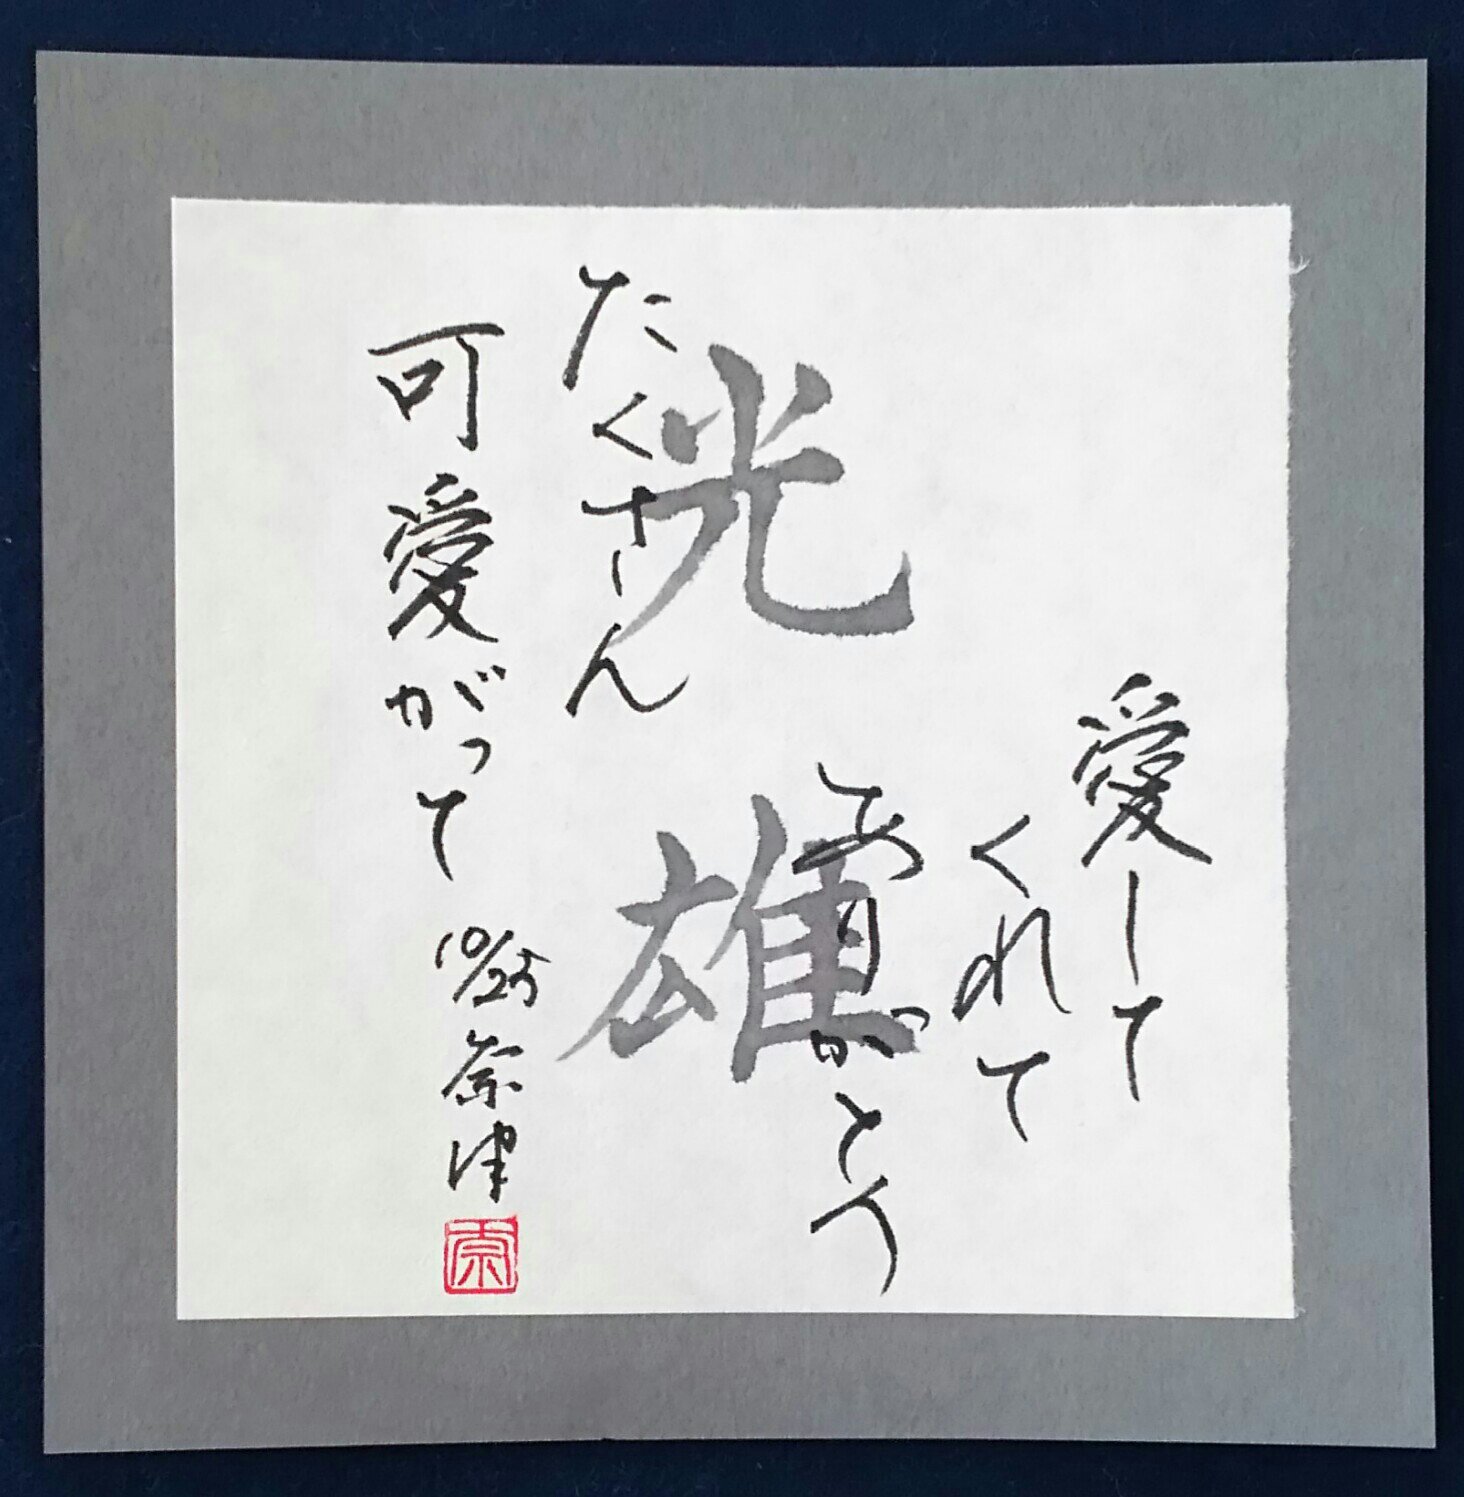 愛して
くれて
ありがとう
光雄
たくさん
可愛がって
10/25 奈津
奈